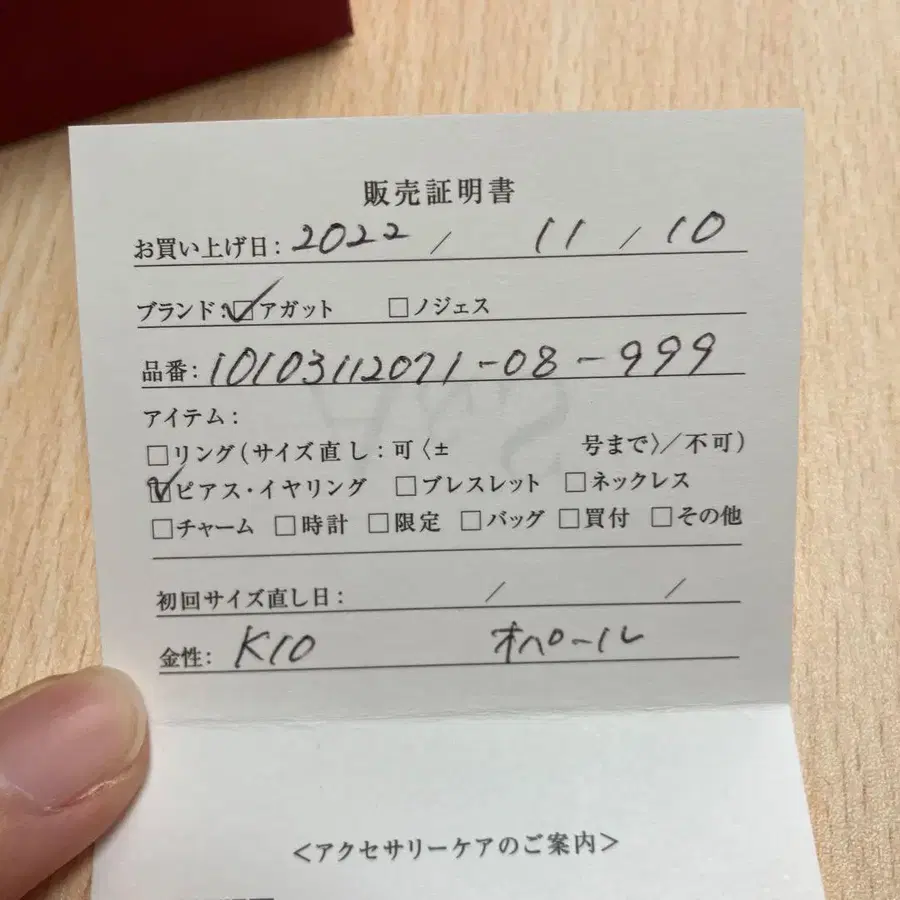 販売証明書
お買い上げ日: 2022 / 11 / 10
ブランド: ☑アガット □ノジェス
品番: 10103112071-08-999
アイテム:
□リング(サイズ直し:可〈± 号まで〉/不可)
☑ピアス・イヤリング □ブレスレット □ネックレス
□チャーム □時計 □限定 □バッグ □買付 □その他
初回サイズ直し日: / /
金性: K10 オパール
<アクセサリーケアのご案内>